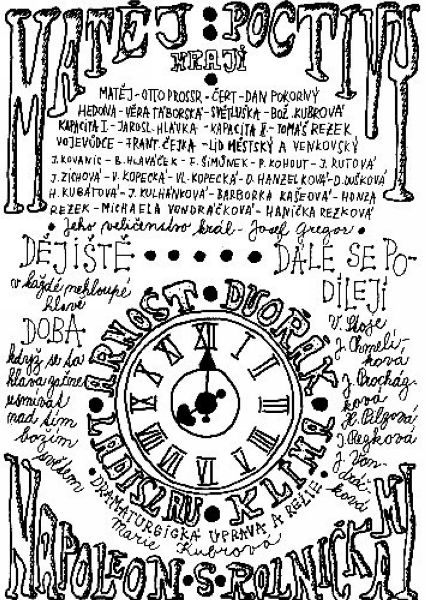 MATĚJ POCTIVÝ
HRAJÍ
MATĚJ - OTTO PROSSR - ČERT - DAN POKORNÝ
HEDONA - VĚRA TÁBORSKÁ - SVĚTLUŠKA - BOŽ. KUBROVÁ
KAPACITA I. - JAROSL. HLAVKA - KAPACITA II - TOMÁŠ REZEK
VOJEVŮDCE - FRANT. ČEJKA - LID MĚSTSKÝ A VENKOVSKÝ
J. KOVANIC - B. HLAVÁČEK - F. ŠIMŮNEK - P. KOHOUT - J. RUTOVÁ
J. ZÍCHOVÁ - V. KOPECKÁ - VL. KOPECKÁ - D. HANZELKOVÁ - D. DUŠKOVÁ
H. KUBÁTOVÁ - J. KULHÁNKOVÁ - BARBORKA KAŠEOVÁ - HONZA
REZEK - MICHAELA VONDRÁČKOVÁ - HANIČKA REZKOVÁ
• Jeho veličenstvo král - Josef Gregor •
DĚJIŠTĚ • • • • •
v každé nehloupé
hlavě
DOBA
když se ta
hlava začne
usmívat
nad tím
božím
světem
DÁLE SE PO-
DÍLEJÍ
V. Stoje
J. Chmelí-
ková
J. Procház-
ková
H. Pilzová
J. Rezková
J. Von-
dráč-
ková
ARNOŠT • DVOŘÁK
LADISLAV • KLÍMA
XII I II III IIII V VI VII VIII IX X XI
• DRAMATURGICKÁ ÚPRAVA A REŽIE •
Marie Kubrová
NAPOLEON • S • ROLNIČKAMI